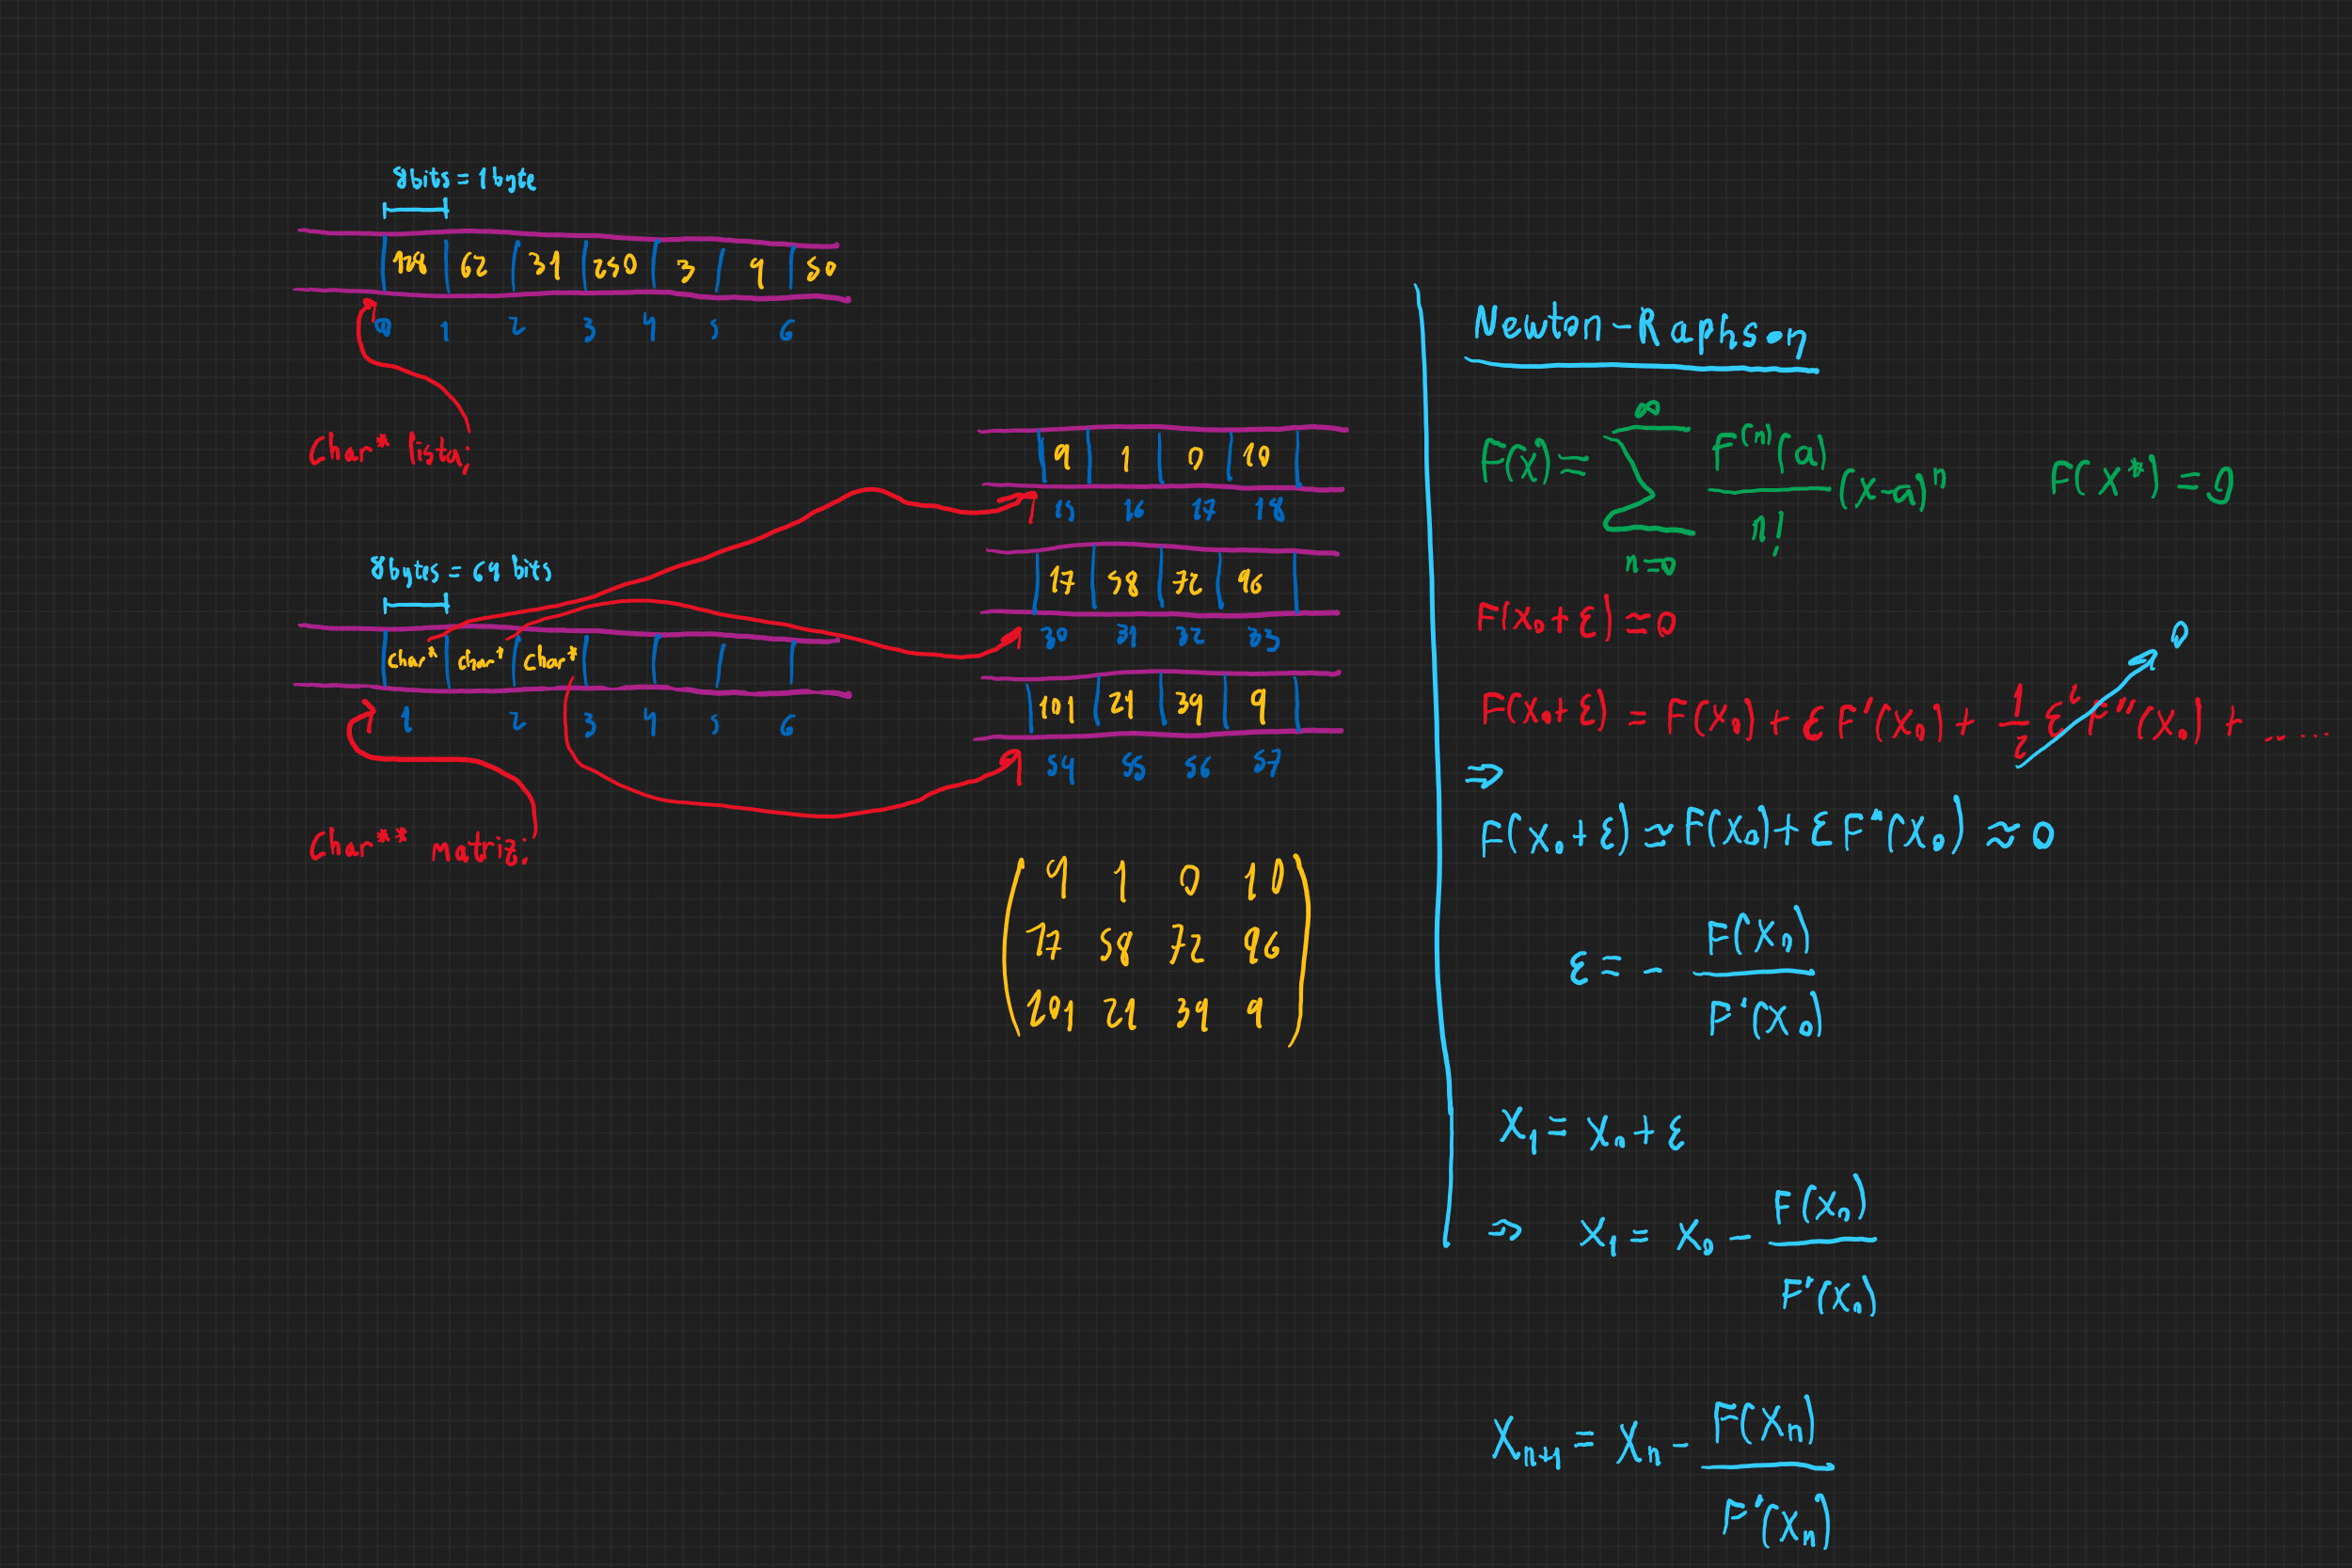 8bits = 1byte
128 62 31 250 3 9 50
0 1 2 3 4 5 6
Char* lista;
8bytes = 64 bits
char* char* char*
1 2 3 4 5 6
Char** matriz;
9 1 0 10
15 16 17 18
17 58 72 96
30 31 32 33
101 21 39 9
54 55 56 57
9 1 0 10
17 58 72 96
101 21 39 9
Newton-Raphson
F(x) = ∑_{n=0}^{∞} F^{(n)}(a)/n! (x-a)^n F(x*) = 0
F(x₀+ε) ≈ 0
F(x₀+ε) = F(x₀) + ε F'(x₀) + 1/2 ε² F''(x₀) + ...... 0
⇒
F(x₀+ε) ≈ F(x₀) + ε F''(x₀) ≈ 0
ε = - F(x₀)/F'(x₀)
x₁ = x₀ + ε
⇒ x₁ = x₀ - F(x₀)/F'(x₀)
x_{n+1} = x_n - F(x_n)/F'(x_n)